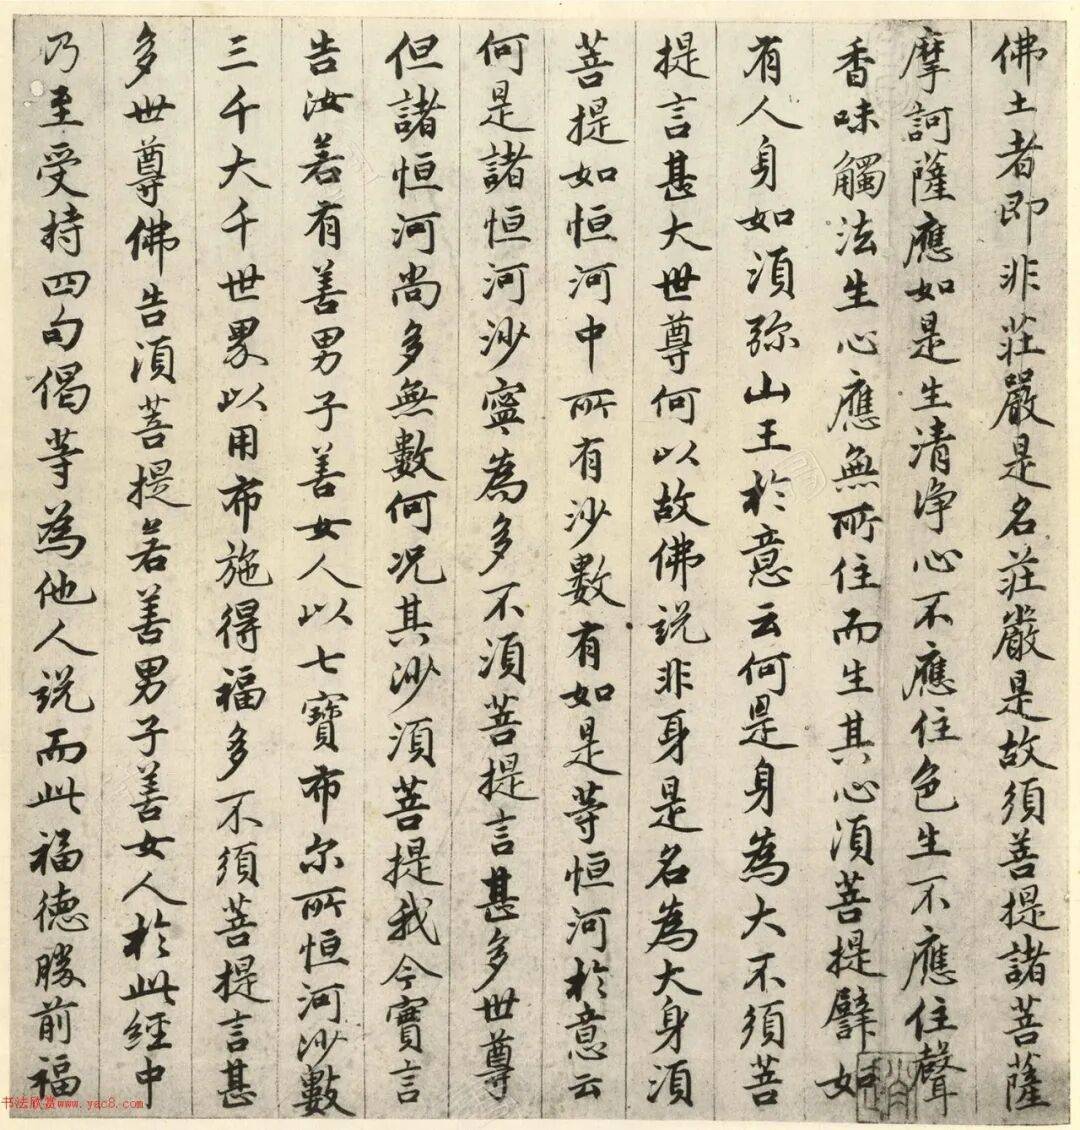 佛土者即非莊嚴是名莊嚴是故須菩提諸菩薩
摩訶薩應如是生清淨心不應住色生不應住聲
香味觸法生心應無所住而生其心須菩提譬如
有人身如須彌山王於意云何是身為大不須菩
提言甚大世尊何以故佛說非身是名為大身須
菩提如恒河中所有沙數有如是等恒河於意云
何是諸恒河沙寧為多不須菩提言甚多世尊
但諸恒河尚多無數何況其沙須菩提我今實言
告汝若有善男子善女人以七寶布尔所恒河沙數
三千大千世界以用布施得福多不須菩提言甚
多世尊佛告須菩提若善男子善女人於此經中
乃至受持四句偈等為他人說而此福德勝前福
书法欣赏www.yac8.com